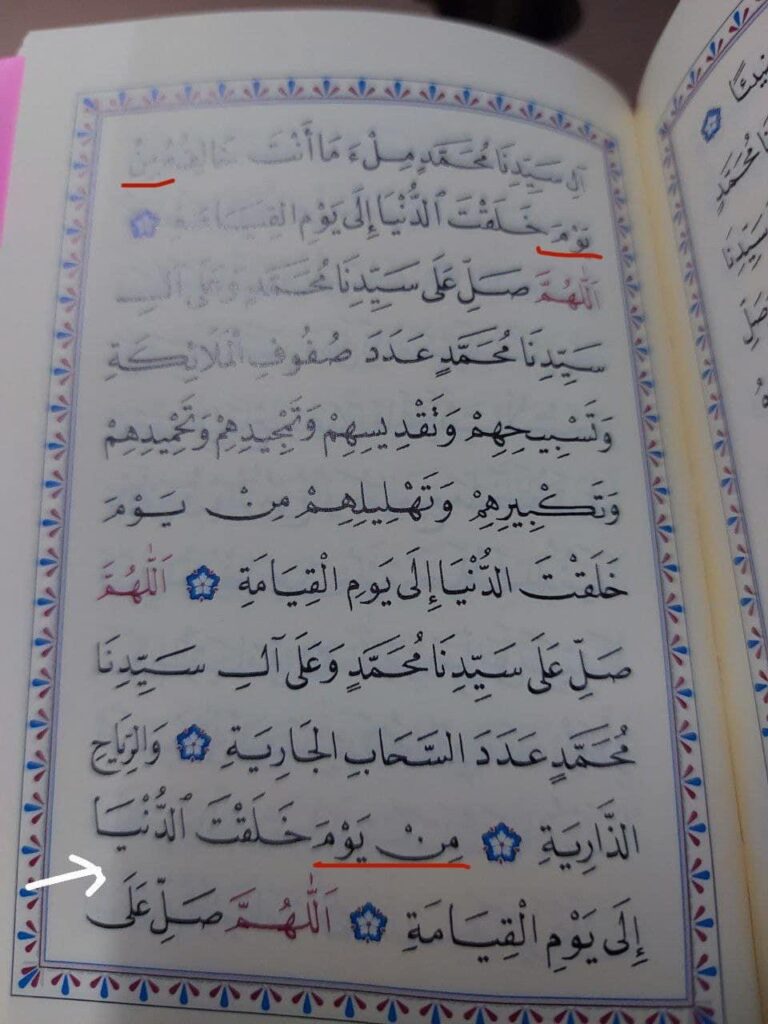 آلِ سَيِّدِنَا مُحَمَّدٍ مِلْءَ مَا أَنْتَ خَالِقُهُ مِنْ
يَوْمَ خَلَقْتَ ٱلدُّنْيَا إِلَى يَوْمِ الْقِيَامَةِ
اَللّٰهُمَّ صَلِّ عَلَى سَيِّدِنَا مُحَمَّدٍ وَعَلَى آلِ
سَيِّدِنَا مُحَمَّدٍ عَدَدَ صُفُوفِ الْمَلَائِكَةِ
وَتَسْبِيحِهِمْ وَتَقْدِيسِهِمْ وَتَمْجِيدِهِمْ وَتَحْمِيدِهِمْ
وَتَكْبِيرِهِمْ وَتَهْلِيلِهِمْ مِنْ يَوْمَ
خَلَقْتَ الدُّنْيَا إِلَى يَوْمِ الْقِيَامَةِ اَللّٰهُمَّ
صَلِّ عَلَى سَيِّدِنَا مُحَمَّدٍ وَعَلَى آلِ سَيِّدِنَا
مُحَمَّدٍ عَدَدَ السَّحَابِ الْجَارِيَةِ وَالرِّيَاحِ
الذَّارِيَةِ مِنْ يَوْمَ خَلَقْتَ ٱلدُّنْيَا
إِلَى يَوْمِ الْقِيَامَةِ اَللّٰهُمَّ صَلِّ عَلَى